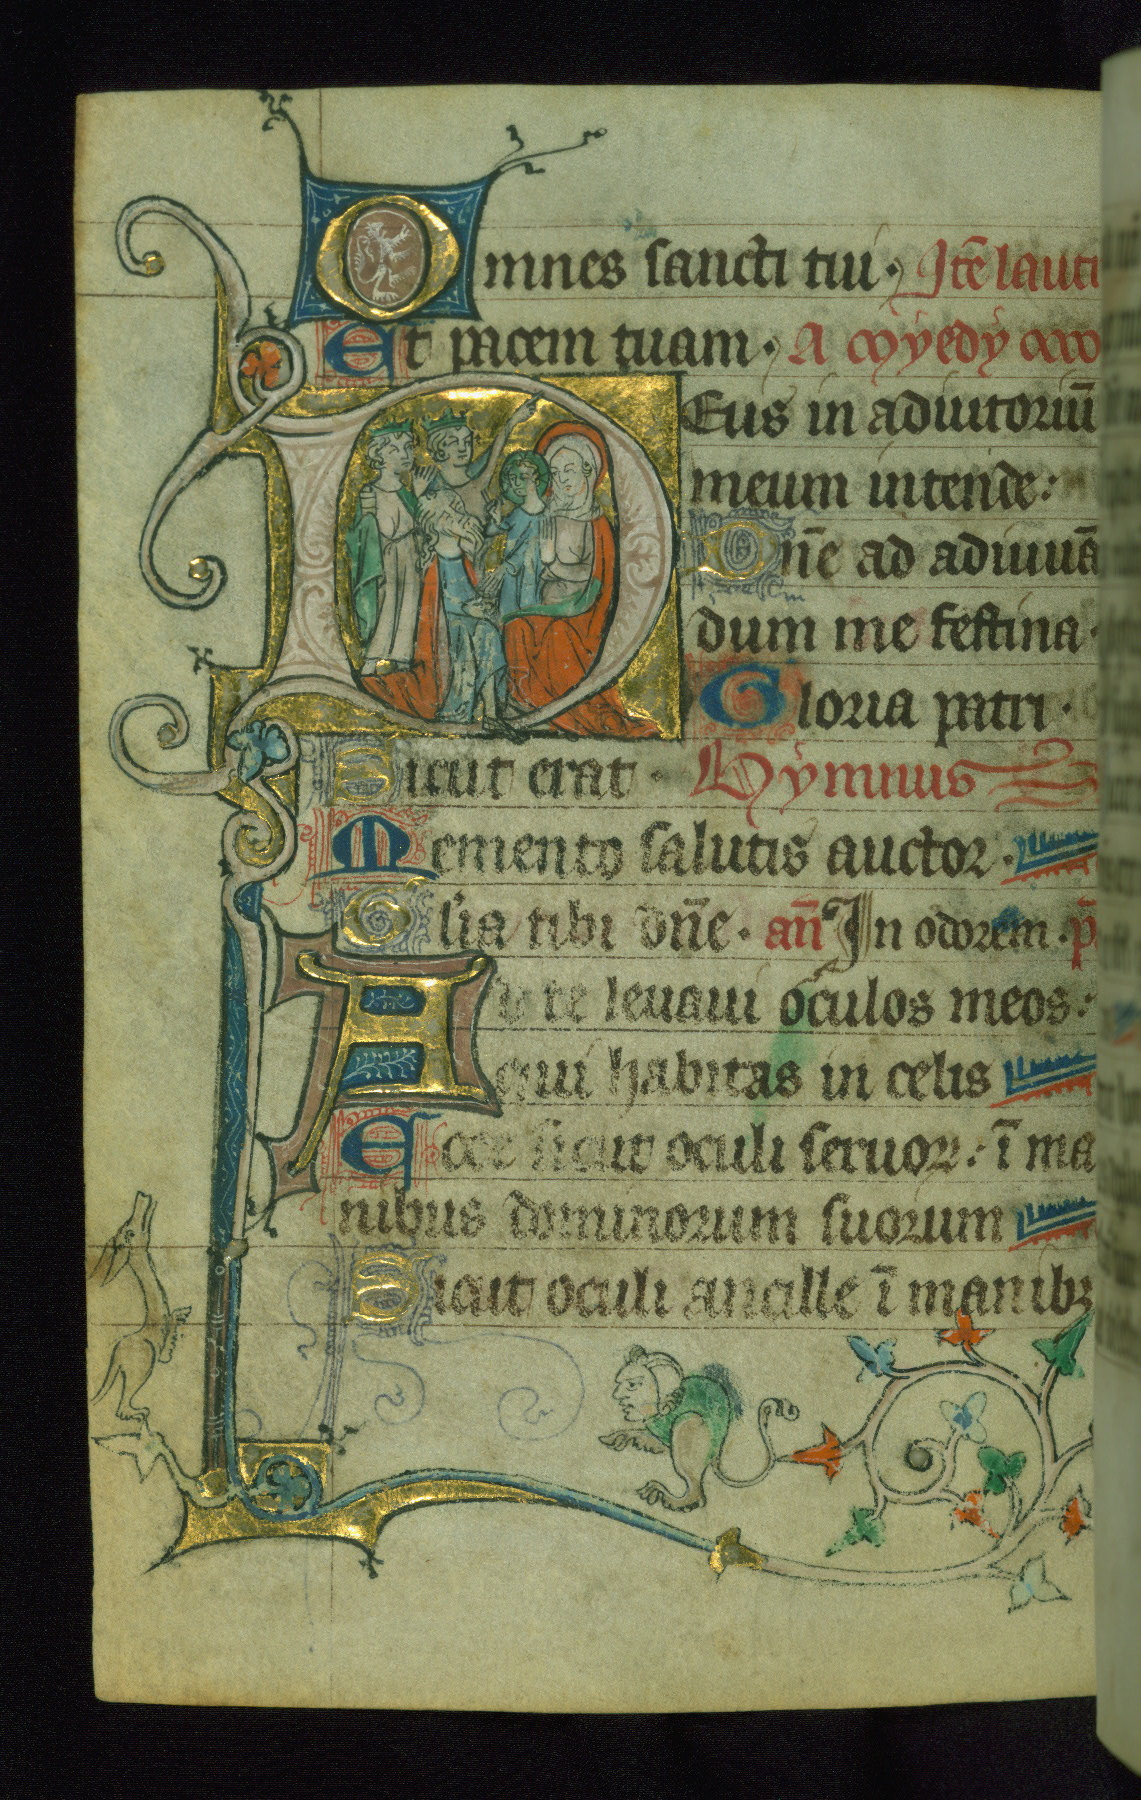 Omnes sancti tui. Itē lauti
Et pacem tuam. A myedy
Deus in adiutoriū
meum intende:
Dn̄e ad adiuuā
dum me festina.
Gloria patri.
Sicut erat. Hymnus
Memento salutis auctor.
Glīa tibi dn̄e. an̄ In odorem. p̄
Ad te leuaui oculos meos:
qui habitas in celis
Ecce sicut oculi seruoꝝ: ī ma
nibus dominorum suorum
Sicut oculi ancille ī manibꝫ